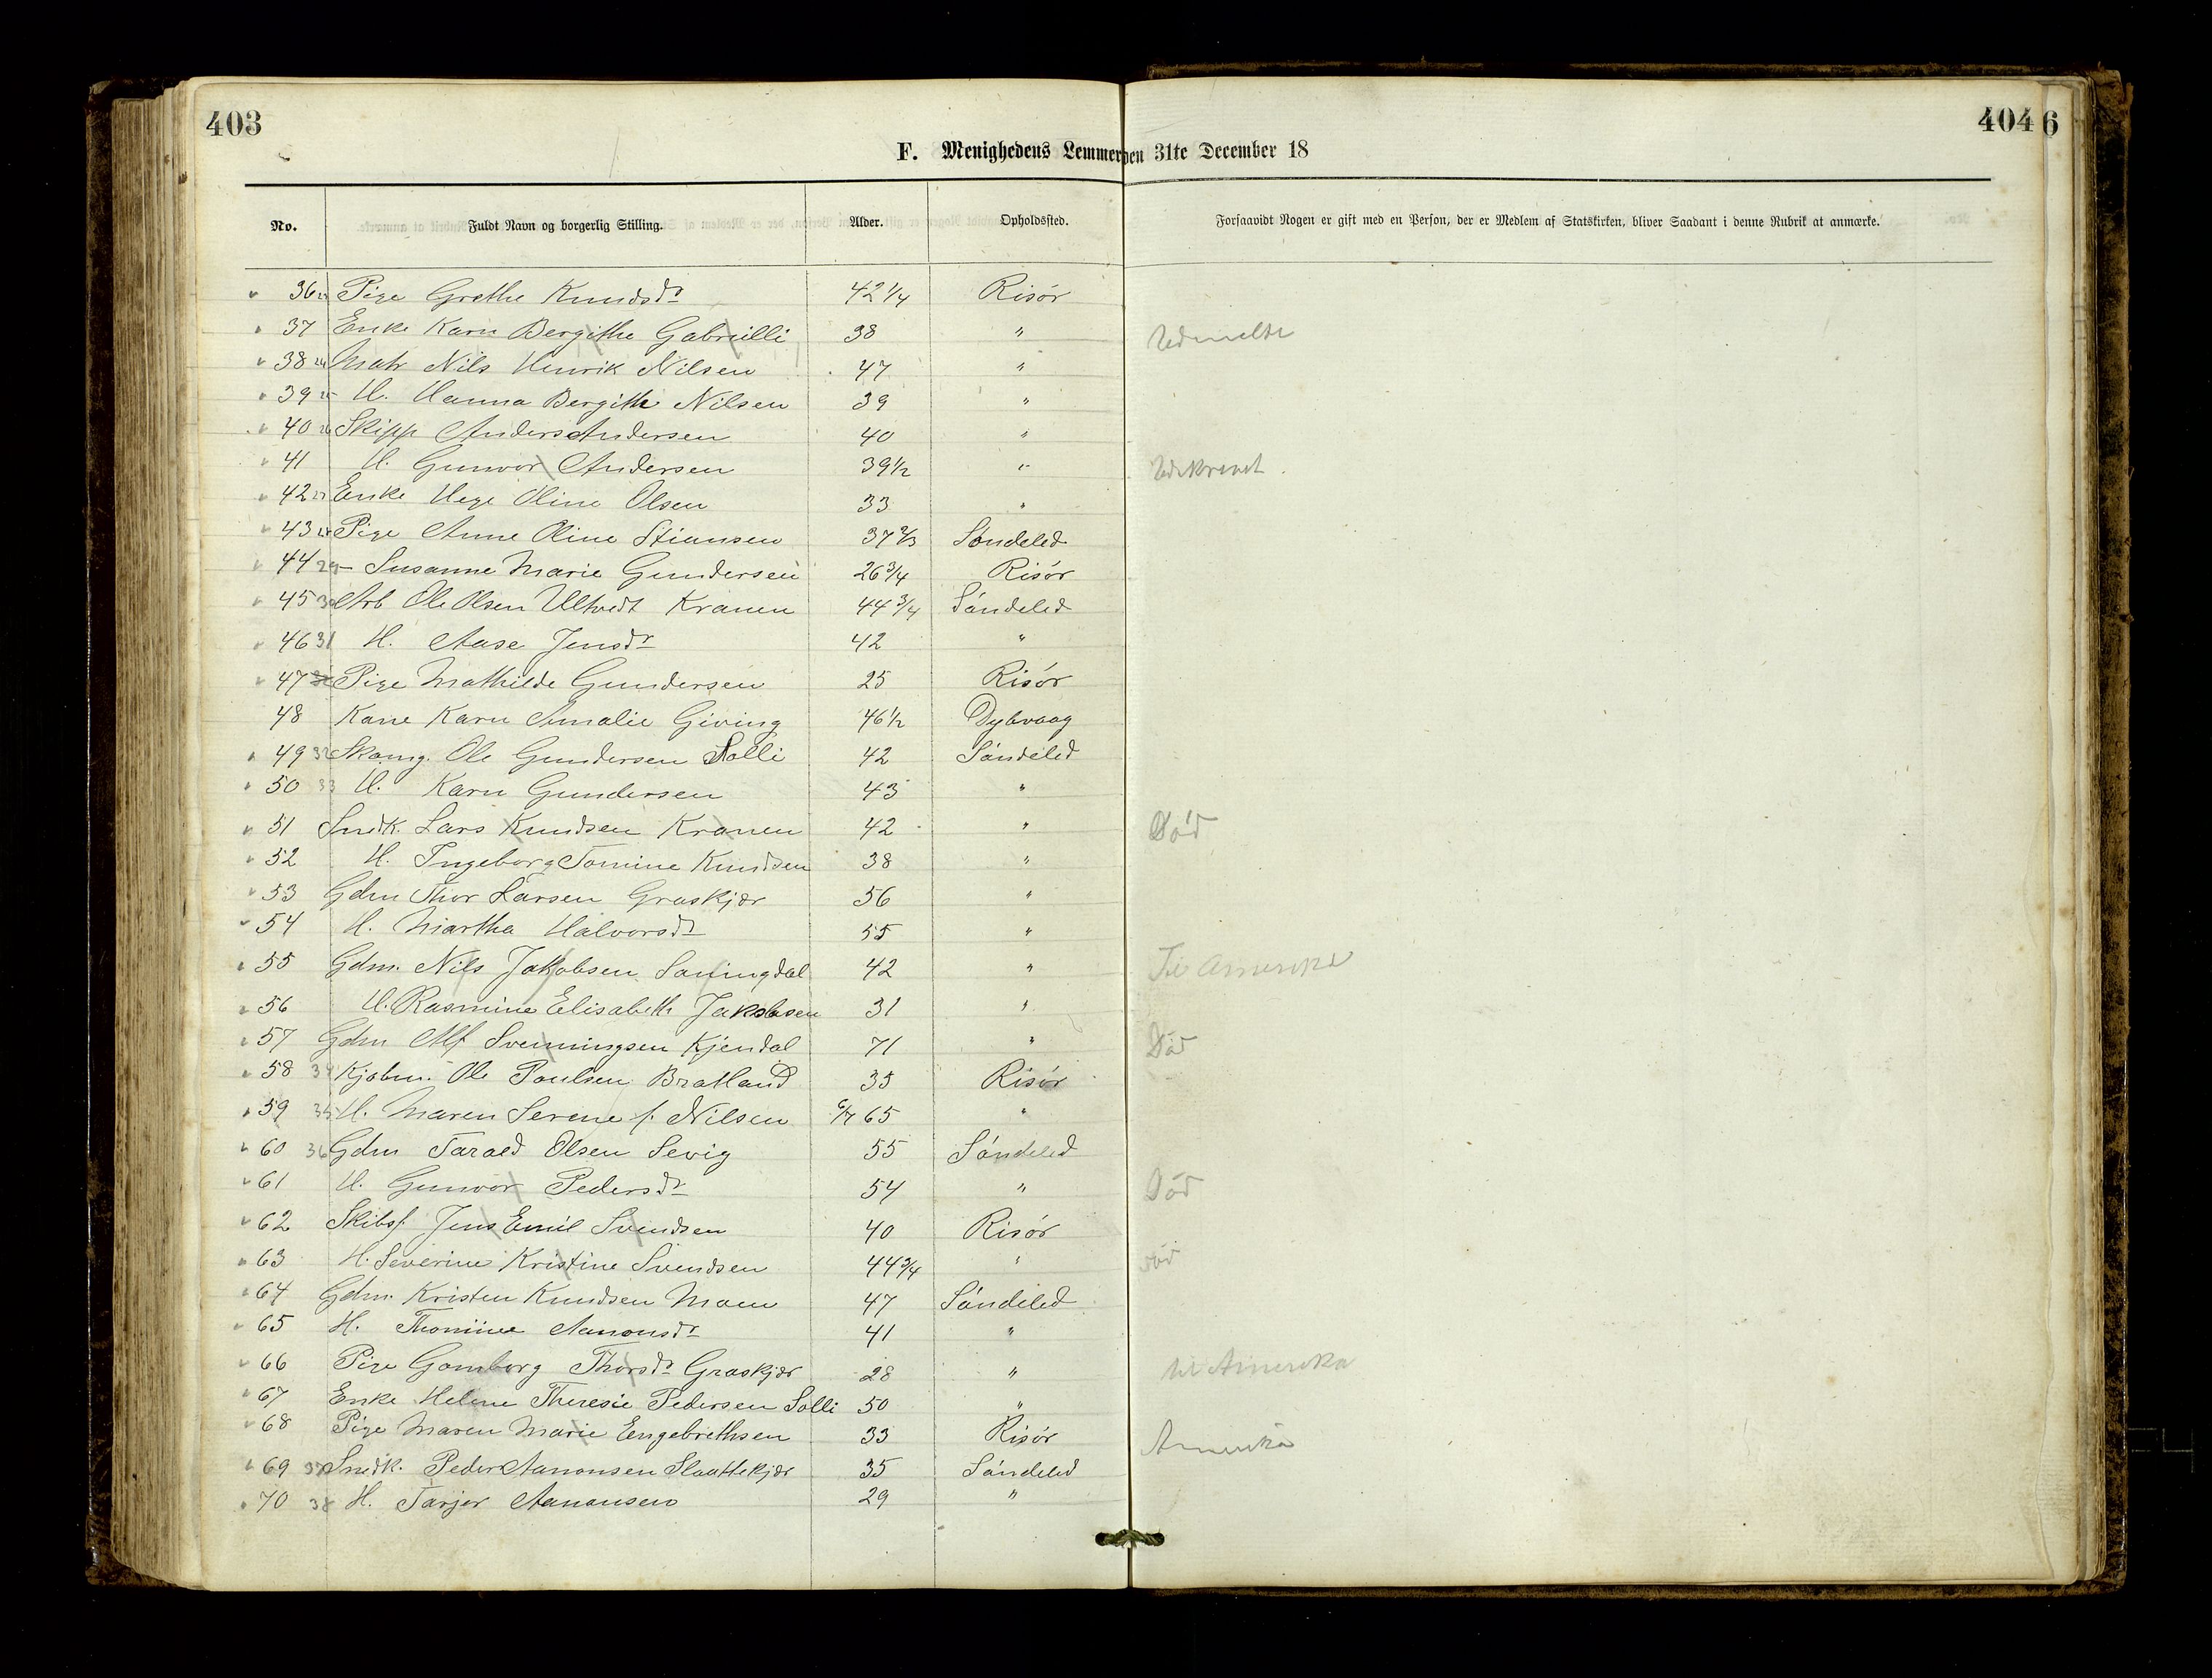 403
404 6
F. Menighedens Lemmer pen 31te December 18
No. Fuldt Navn og borgerlig Stilling. Alder. Opholdssted. Forsaavidt Nogen er gift med en Person, der er Medlem af Statskirken, bliver Saadant i denne Rubrik at anmærke.
36 Pige Grethe Knudsdr 42 1/4 Risør
37 Enke Karn Bergithe Gabrielli 38 " Udmeldt
38 24 Matr Nils Henrik Nilsen 47 "
39 25 H. Hanna Bergithe Nilsen 39 "
40 26 Skipp Anders Andersen 40 "
41 H. Gunvor Andersen 39 1/2 " Udskrevet.
42 27 Enke Hege Oline Olsen 33 "
43 28 Pige Anne Oline Stiansen 37 2/3 Søndeled
44 29 - Susanne Marie Gundersen 26 3/4 Risør
45 30 Arb Ole Olsen Ultvedt Kranen 44 3/4 Søndeled
46 31 H. Aase Jensdr 42 "
47 Pige Mathilde Gundersen 25 Risør
48 Kone Karn Amalie Giving 46 1/2 Dybvaag
49 32 Skomg. Ole Gundersen Solli 42 Søndeled
50 33 H. Karn Gundersen 43 "
51 Snedk. Lars Knudsen Kranen 42 " Død
52 H. Ingeborg Tomine Knudsen 38 "
53 Gdm Thor Larsen Graskjær 56 "
54 H. Martha Halvorsdr 55 "
55 Gdm. Nils Jakobsen Saningdal 42 " Til Amerika
56 H. Rasmine Elisabeth Jakobsen 31 "
57 Gdm Alf Svenningsen Kjendal 71 " Død
58 34 Kjøbm. Ole Poulsen Bratland 35 Risør
59 35 H. Maren Serene f. Nilsen 6/7 65 "
60 36 Gdm Tarald Olsen Sevig 55 Søndeled
61 H. Gunvor Pedersdr 54 " Død
62 Skibsf. Jens Emil Svendsen 40 Risør
63 H. Severine Kristine Svendsen 44 3/4 " død
64 Gdm. Kristen Knudsen Moen 47 Søndeled
65 H. Thomine Aanonsdr 41 "
66 Pige Gomborg Thorsdr Graskjær 28 " til Amerika
67 Enke Helene Theresie Pedersen Solli 50 "
68 Pige Maren Marie Eengebrethsen 33 Risør Amerika
69 37 Snedk. Peder Aanonsen Slaattekjær 35 Søndeled
70 38 H. Tarjer Aanonsen 29 "